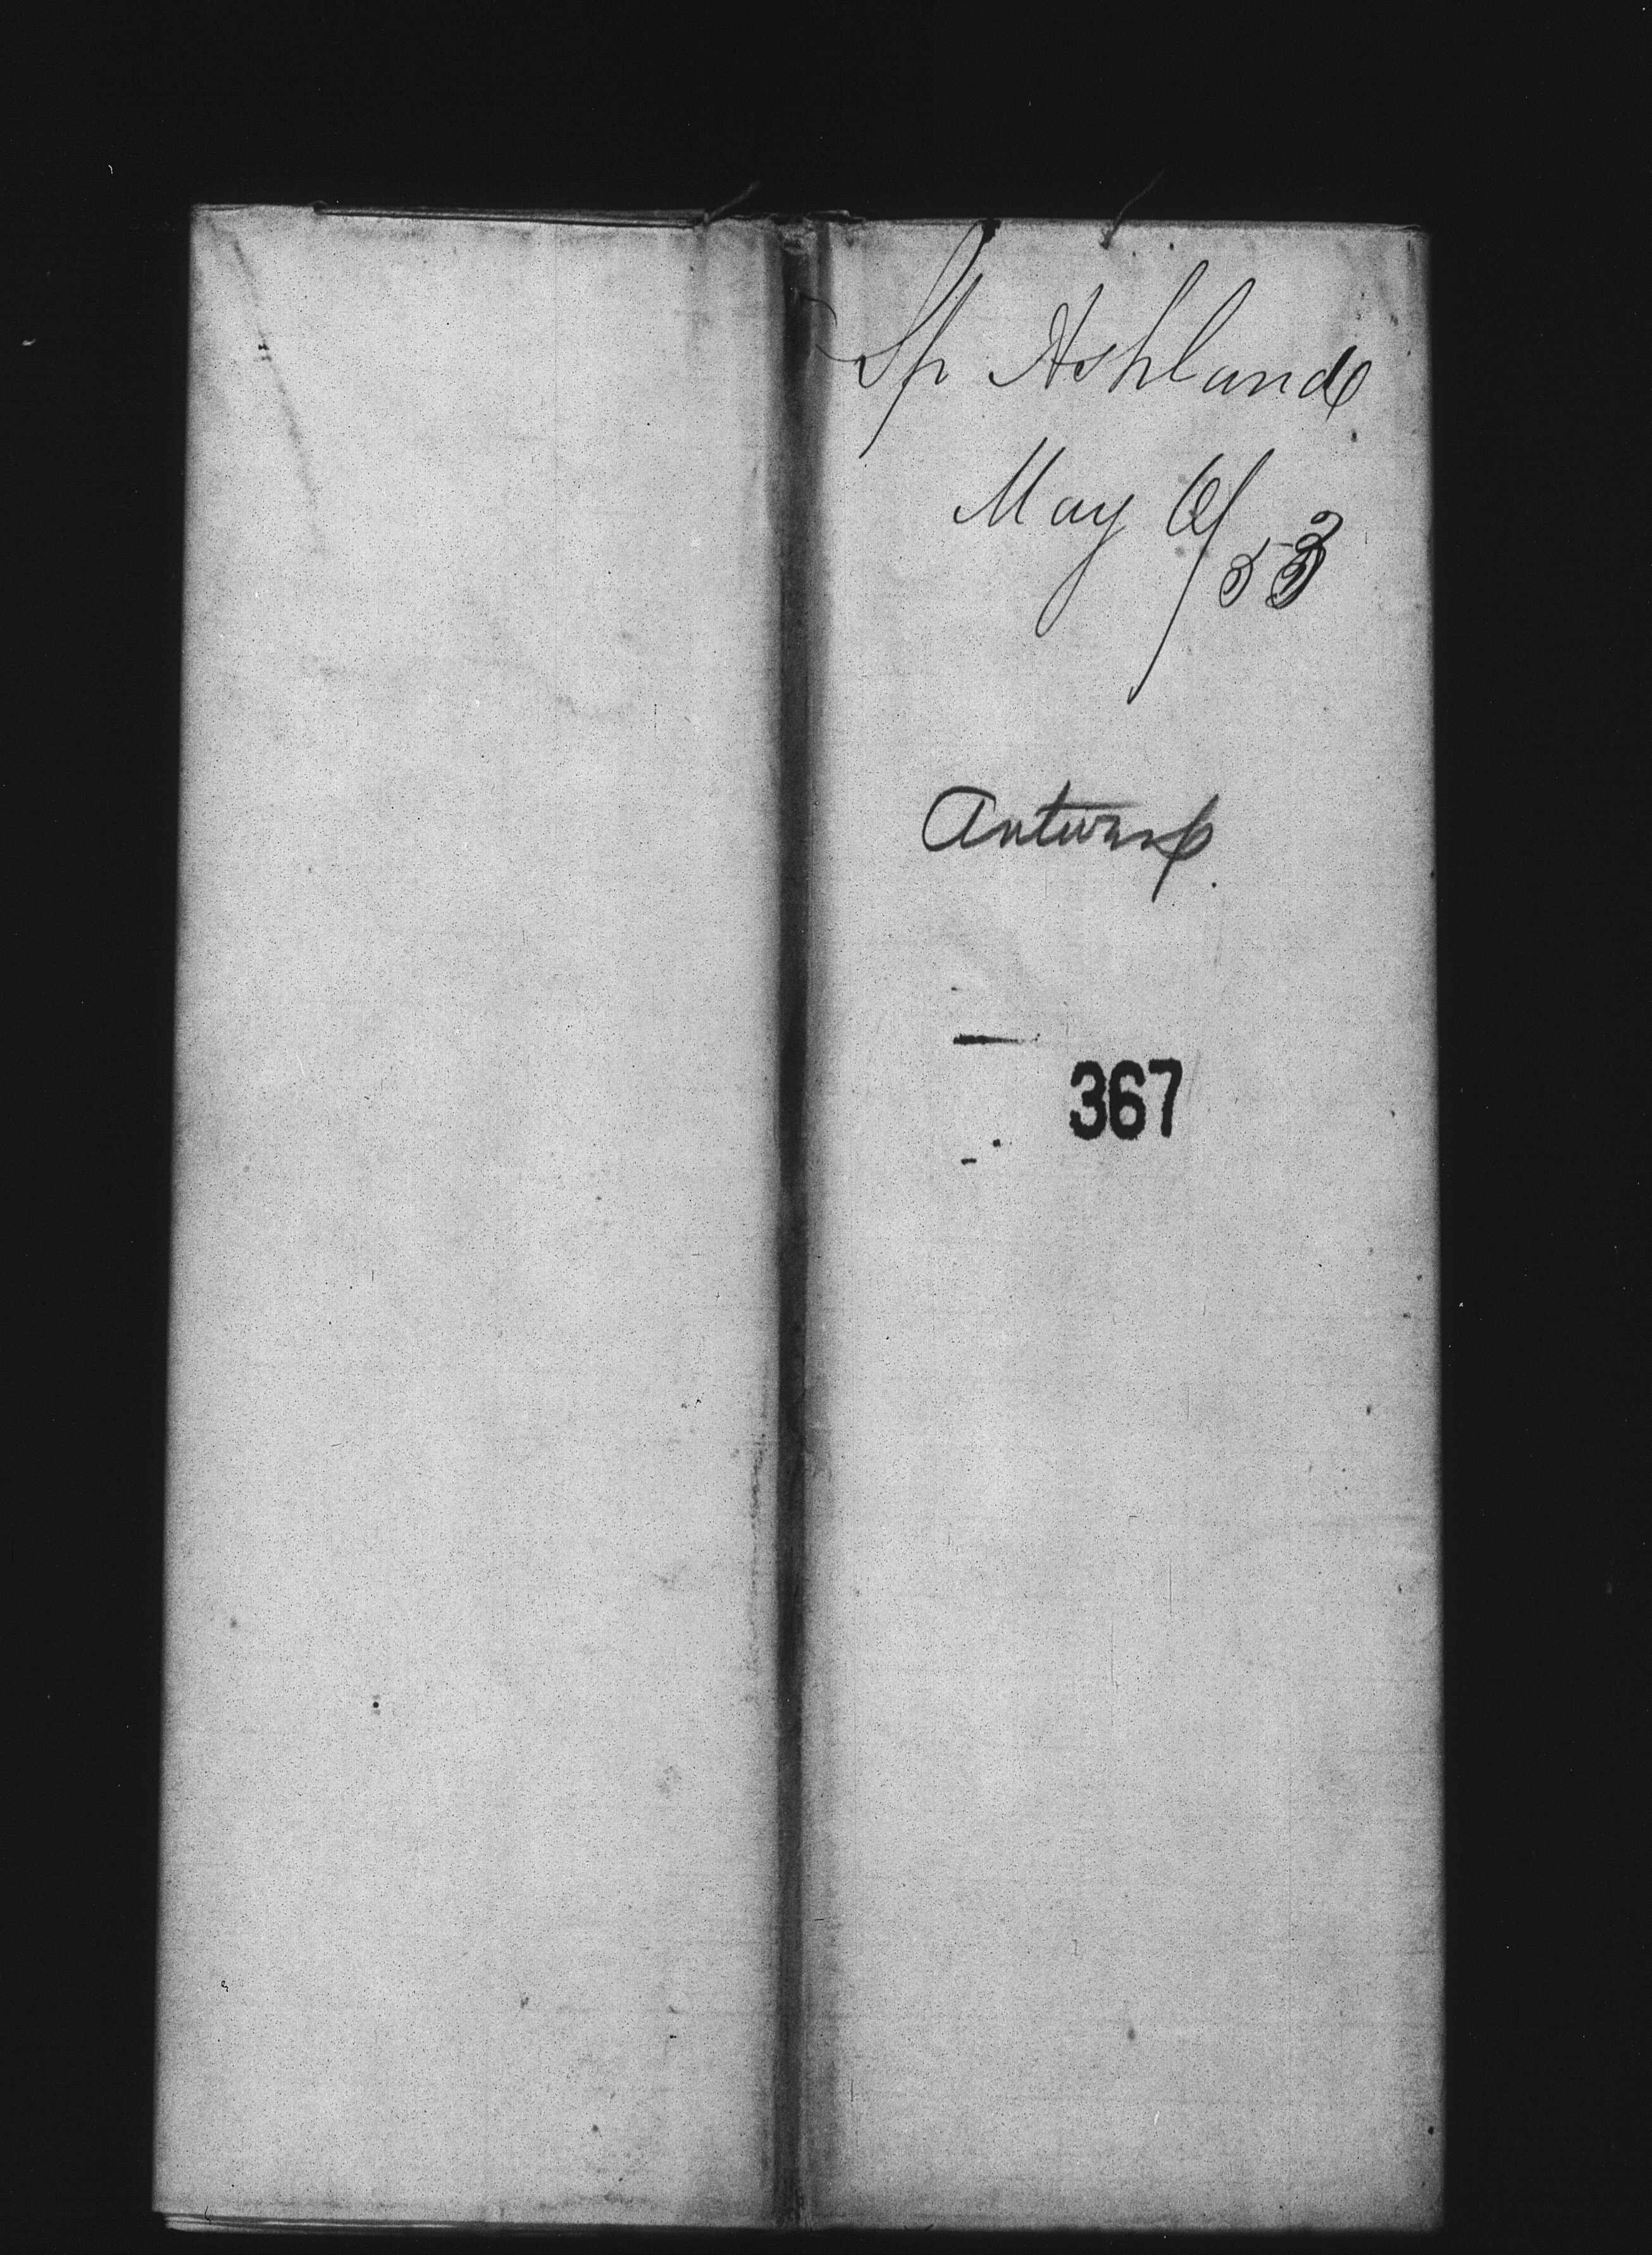 Sp Ashland
May 6/53
Antwerp.
367